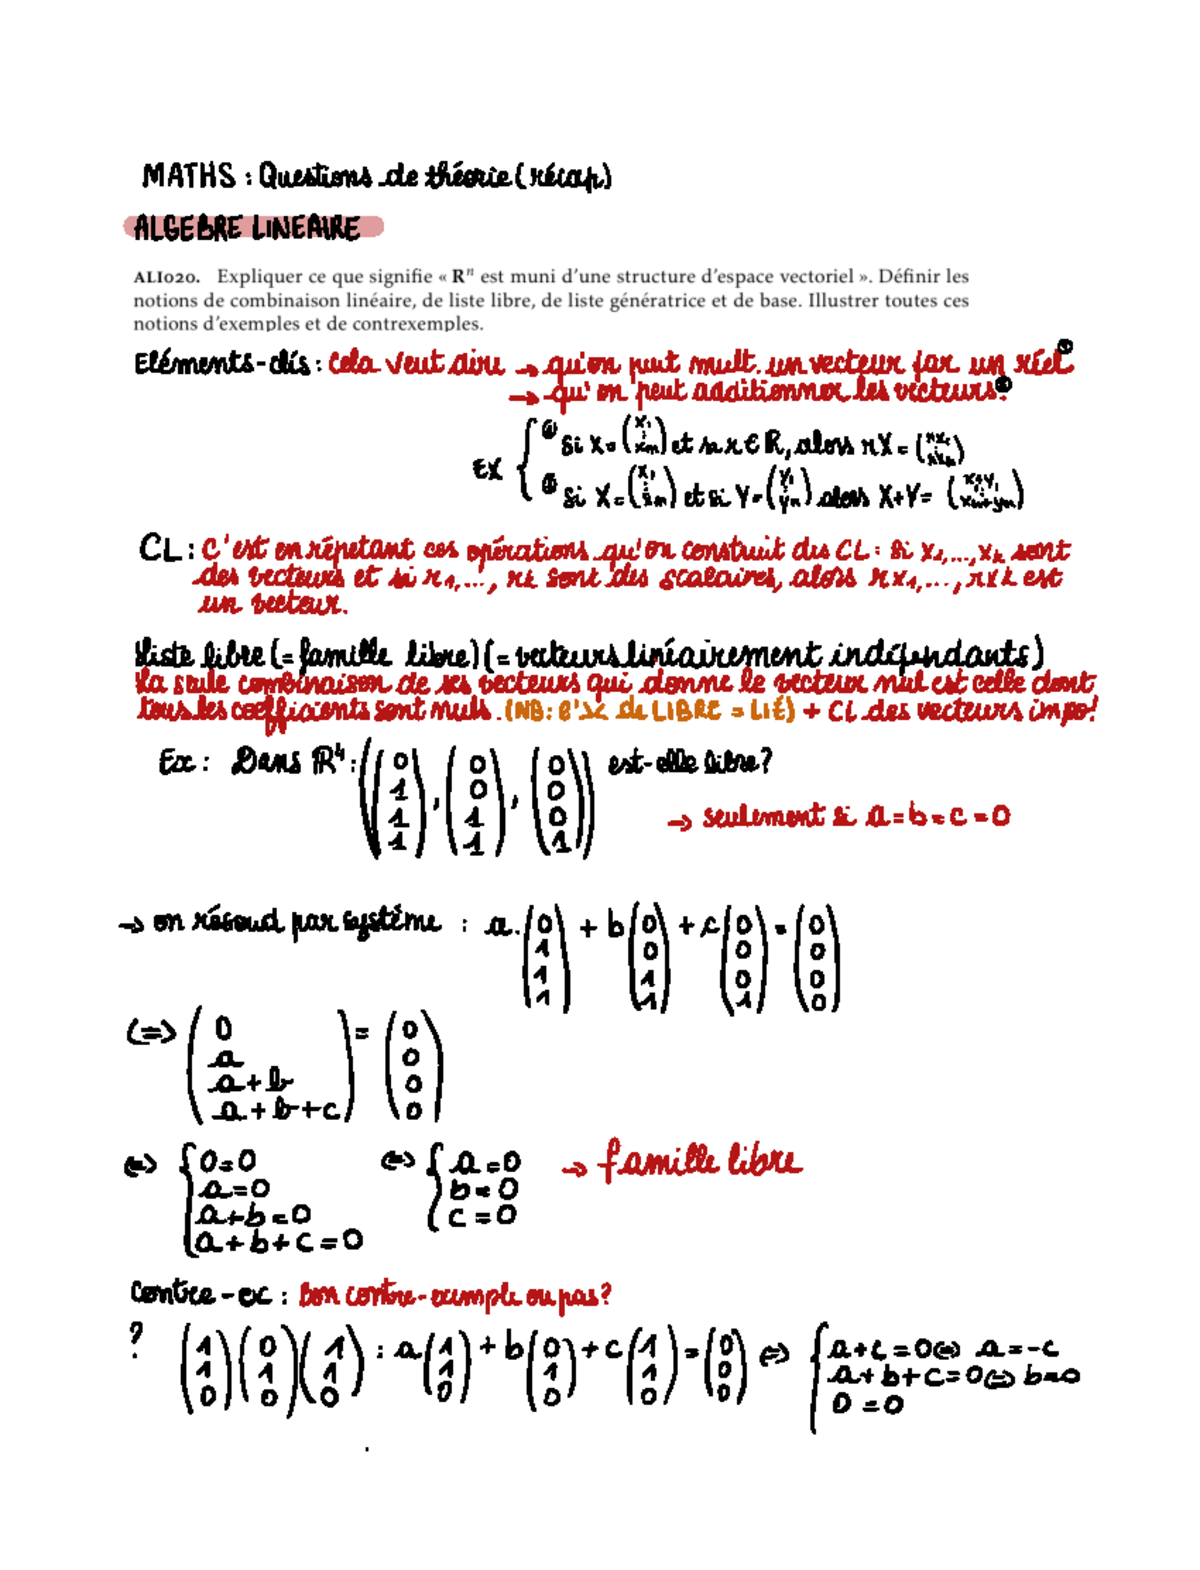 MATHS : Questions de théorie (récap)
ALGEBRE LINEAIRE
ALI020. Expliquer ce que signifie « Rⁿ est muni d'une structure d'espace vectoriel ». Définir les
notions de combinaison linéaire, de liste libre, de liste génératrice et de base. Illustrer toutes ces
notions d'exemples et de contrexemples.
Eléments-clés : Cela veut dire → qu'on peut mult. un vecteur par un réel
→ qu'on peut additionner les vecteurs.
EX { Si X = (x₁ ⋮ xₙ) et si r ∈ R, alors rX = (rx₁ ⋮ rxₙ)
Si X = (x₁ ⋮ xₙ) et si Y = (y₁ ⋮ yₙ) alors X+Y = (x₁+y₁ ⋮ xₙ+yₙ)
CL : C'est en répetant ces opérations qu'on construit des CL : Si x₁,...,xₖ sont
des vecteurs et si r₁,..., rₖ sont des scalaires, alors rx₁,..., rxₖ est
un vecteur.
Liste libre (= famille libre) (= vecteurs linéairement indépendants)
La seule combinaison de ses vecteurs qui donne le vecteur nul est celle dont
tous les coefficients sont nuls. (NB: de LIBRE = LIÉ) + CL des vecteurs impo!
Ex : Dans R⁴ : ((0 1 1 1), (0 0 1 1), (0 0 0 1)) est-elle libre?
→ seulement si a = b = c = 0
→ on résoud par système : a.(0 1 1 1) + b(0 0 1 1) + c(0 0 0 1) = (0 0 0 0)
(=> (0 a a+b a+b+c) = (0 0 0 0)
<=> { 0=0 <=> { a=0 → famille libre
a=0 b=0
a+b=0 c=0
a+b+c=0
Contre-ex : bon contre-exemple ou pas?
? (1 1 0)(0 1 0)(1 1 0) : a(1 1 0) + b(0 1 0) + c(1 1 0) = (0 0 0) <=> { a+c=0 <=> a=-c
a+b+c=0 <=> b=0
0=0